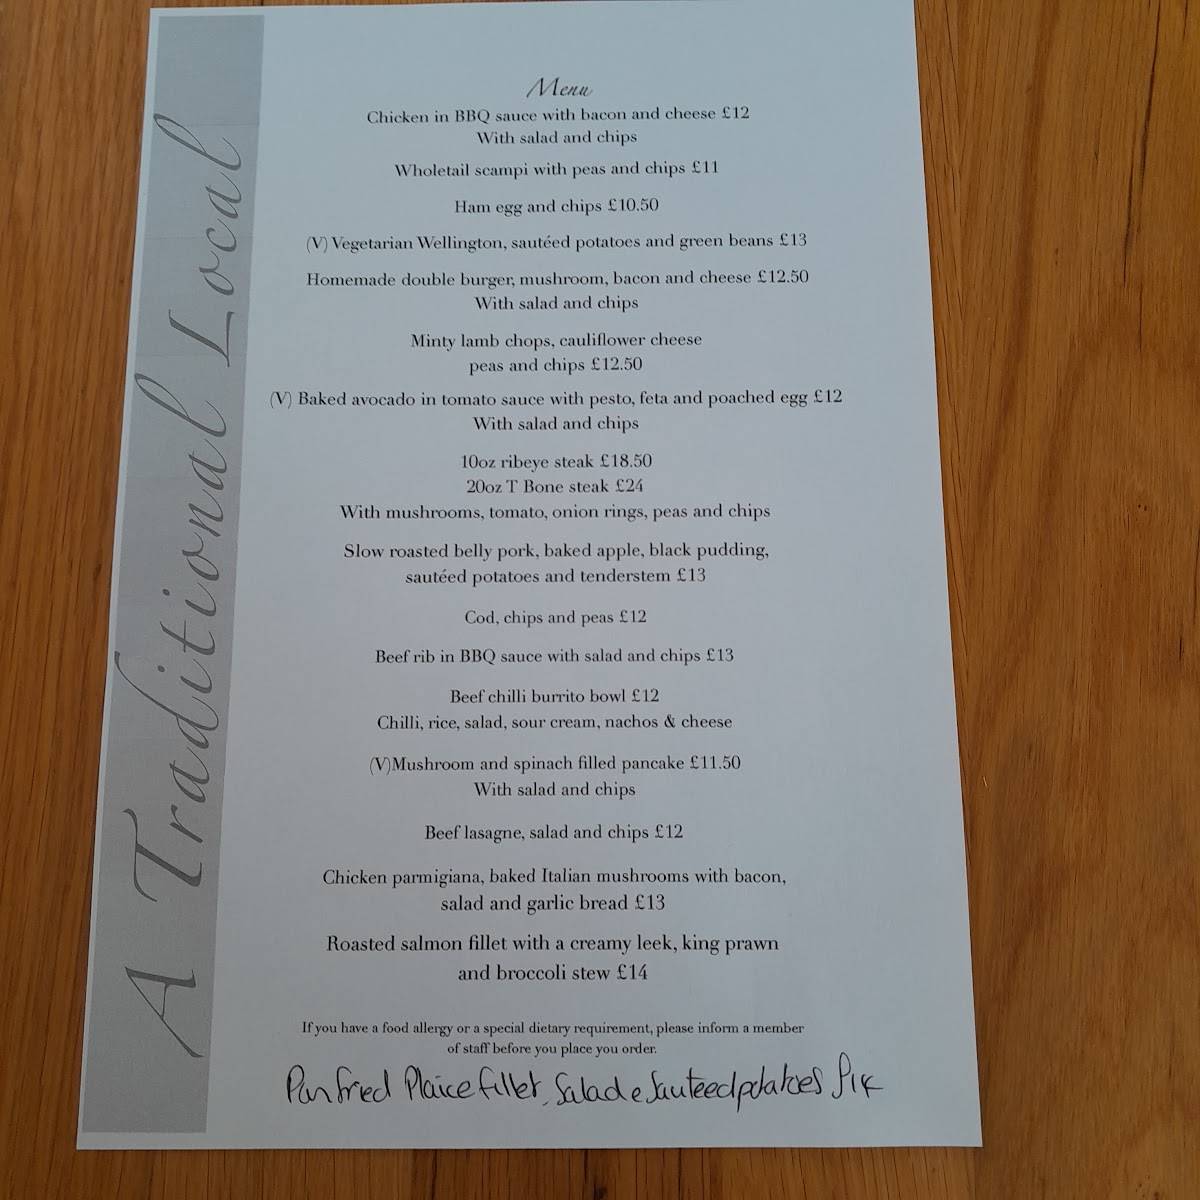 A Traditional Local
Menu
Chicken in BBQ sauce with bacon and cheese £12
With salad and chips
Wholetail scampi with peas and chips £11
Ham egg and chips £10.50
(V) Vegetarian Wellington, sautéed potatoes and green beans £13
Homemade double burger, mushroom, bacon and cheese £12.50
With salad and chips
Minty lamb chops, cauliflower cheese
peas and chips £12.50
(V) Baked avocado in tomato sauce with pesto, feta and poached egg £12
With salad and chips
10oz ribeye steak £18.50
20oz T Bone steak £24
With mushrooms, tomato, onion rings, peas and chips
Slow roasted belly pork, baked apple, black pudding,
sautéed potatoes and tenderstem £13
Cod, chips and peas £12
Beef rib in BBQ sauce with salad and chips £13
Beef chilli burrito bowl £12
Chilli, rice, salad, sour cream, nachos & cheese
(V)Mushroom and spinach filled pancake £11.50
With salad and chips
Beef lasagne, salad and chips £12
Chicken parmigiana, baked Italian mushrooms with bacon,
salad and garlic bread £13
Roasted salmon fillet with a creamy leek, king prawn
and broccoli stew £14
If you have a food allergy or a special dietary requirement, please inform a member
of staff before you place you order.
Pan fried Plaice fillet, Salad e Sauteed potatoes £14